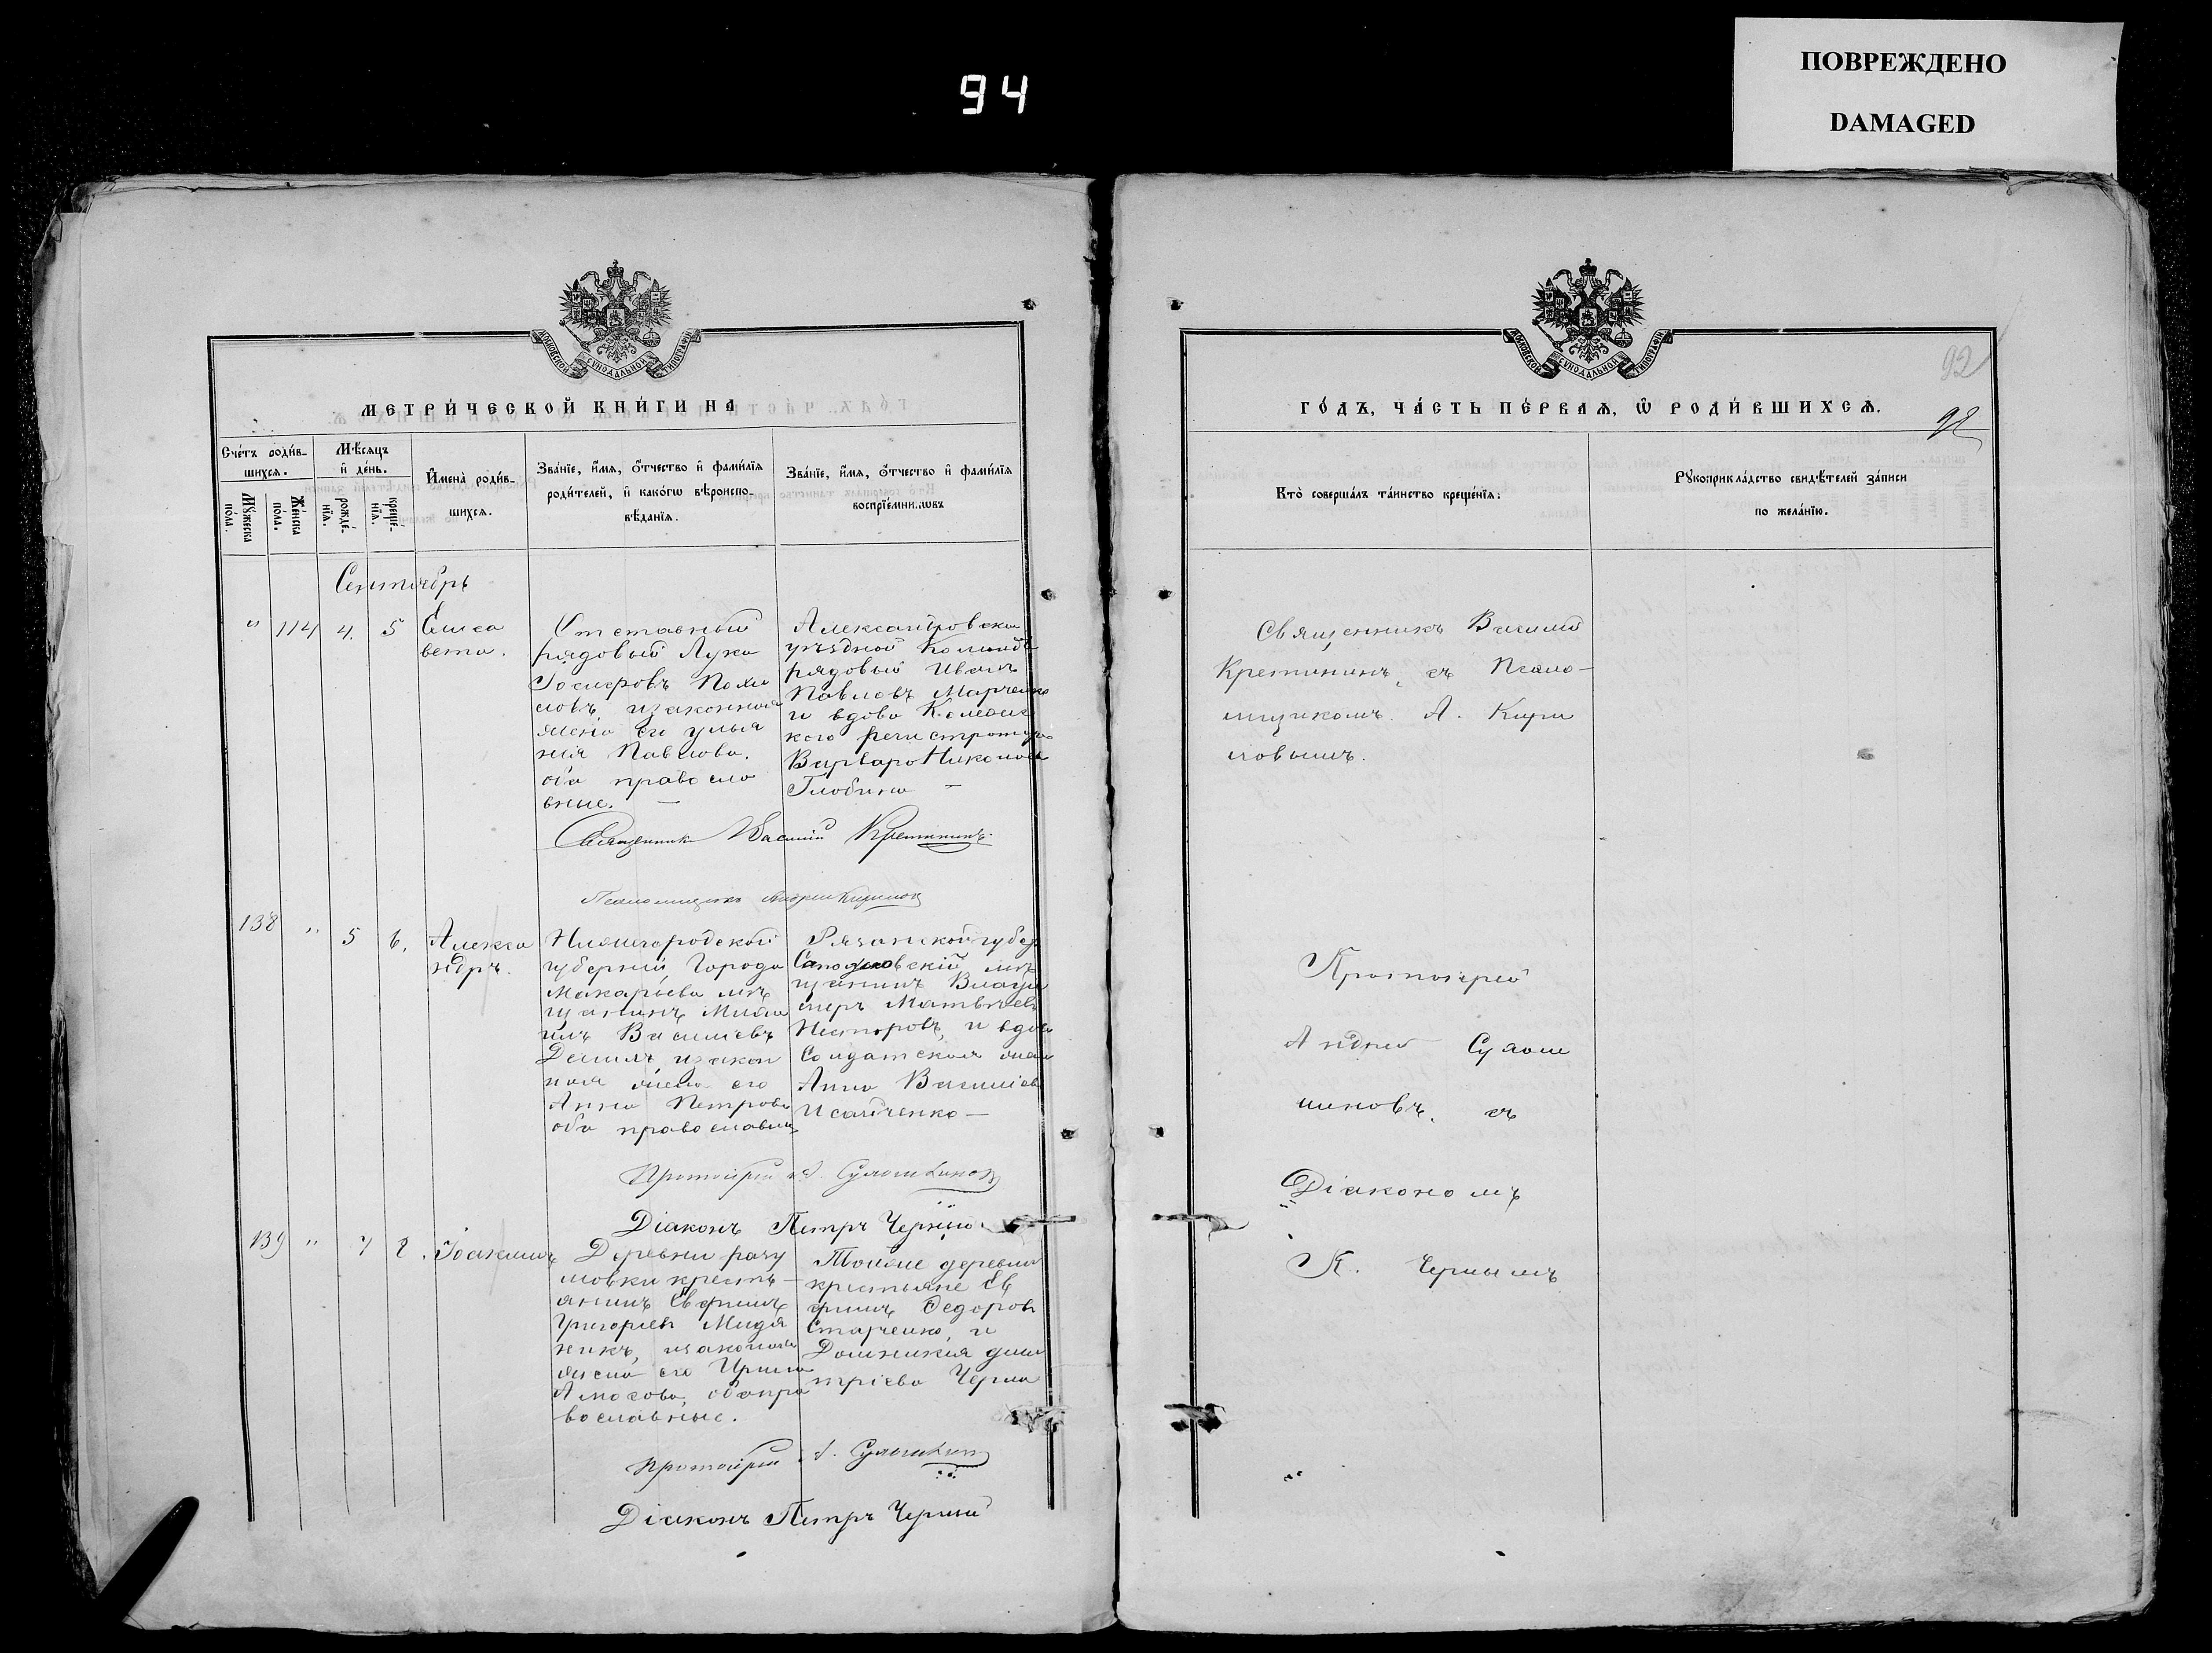 94
ПОВРЕЖДЕНО
DAMAGED
МОСКОВСКОЙ СѴНОДАЛЬНОЙ ТИПОГРАФІИ
МЕТРИ́ЧЕСКОЙ КНИ́ГИ НА
Сче́тъ роди́в-
шихсѧ.
Мꙋ́жеска по́ла.
Же́нска по́ла.
Мѣ́сяцъ
и҆ де́нь.
рожде́-
нїѧ.
креще́-
нїѧ.
И҆мена̀ роди́в-
шихсѧ.
Зва́нїе, и҆́мѧ, ѻ҆́тчество и҆ фами́лїѧ
роди́телей, и҆ како́гѡ вѣроиспо-
вѣ́данїѧ.
Зва́нїе, и҆́мѧ, ѻ҆́тчество и҆ фами́лїѧ
воспрїе́мникѡвъ
Сентябрь
" 114 4. 5 Елиса
вета.
Отставный
рядовый Лука
Іосифовъ
ловъ, изаконная
жена его Улья
нія Павлова.
оба правосла
вные. —
Александровской
уѣздной Команды
рядовый Иванъ
Павловъ Марченко
и вдова Коллежс
кого регистратора
Варвара Николаева
Глобина —
Священникъ Василій Кретининъ.
Псаломщикъ Андрей Кириловъ
138 " 5 6. Алекса
ндръ.
Нижегородской
губерніи, Города
Макарьева мѣ
щанинъ Миха
илъ Васильевъ
изакон
ная жена его
Анна Петрова
оба православные
Рязанской губер
Сапожковскій мѣ
щанинъ Влади
меръ Матвѣевъ
Несторовъ, и вдова
Солдатская жена
Анна Василіева
Исайченко —
Протоіерей А. Сулошкиновъ
Діаконъ Петръ Черный
139 " 7 8. Іоакимъ
Деревни Разу
мовки кресть-
янинъ Ефимъ
Григорьевъ
никъ, изаконная
жена его Ирина
Амосова, оба пра
вославные.
Тойже деревни
крестьяне Еф
фимъ Федоровъ
Старченко, и
Домникія Дми
тріева Черна
Протоіерей А. Сулошкиновъ
Діаконъ Петръ Черный
92
ГО́ДЪ, ЧА́СТЬ ПЕ́РВАѦ, Ѡ҆ РОДИ́ВШИХСѦ.
92
Кто̀ соверша́лъ та́инство креще́нїѧ:
Рꙋкоприкла́дство свидѣ́телей за́писи
по жела́нїю.
Священникъ Василій
Кретининъ, съ Псало-
мщикомъ. А. Кири
ловымъ.
Протоіерей
Андрей Сулош
киновъ. съ
Діакономъ
П. Чернымъ